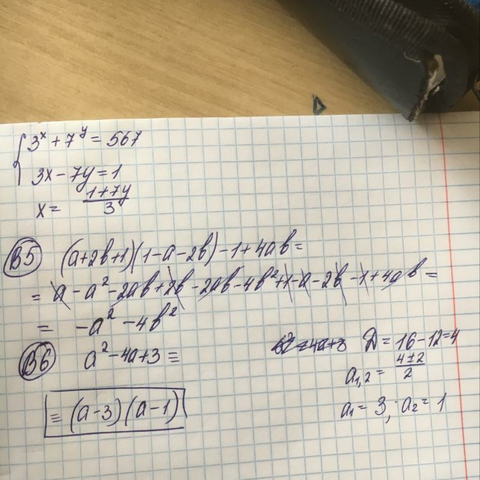 3ˣ + 7ʸ = 567
3x - 7y = 1
x = (1+7y)/3
B5 (a+2b+1)(1-a-2b) - 1 + 4ab =
= a - a² - 2ab + 2b - 2ab - 4b² + 1 - a - 2b - 1 + 4ab =
= -a² - 4b²
B6 a² - 4a + 3 =
D = 16 - 12 = 4
a₁,₂ = (4±2)/2
a₁ = 3; a₂ = 1
= (a-3)(a-1)